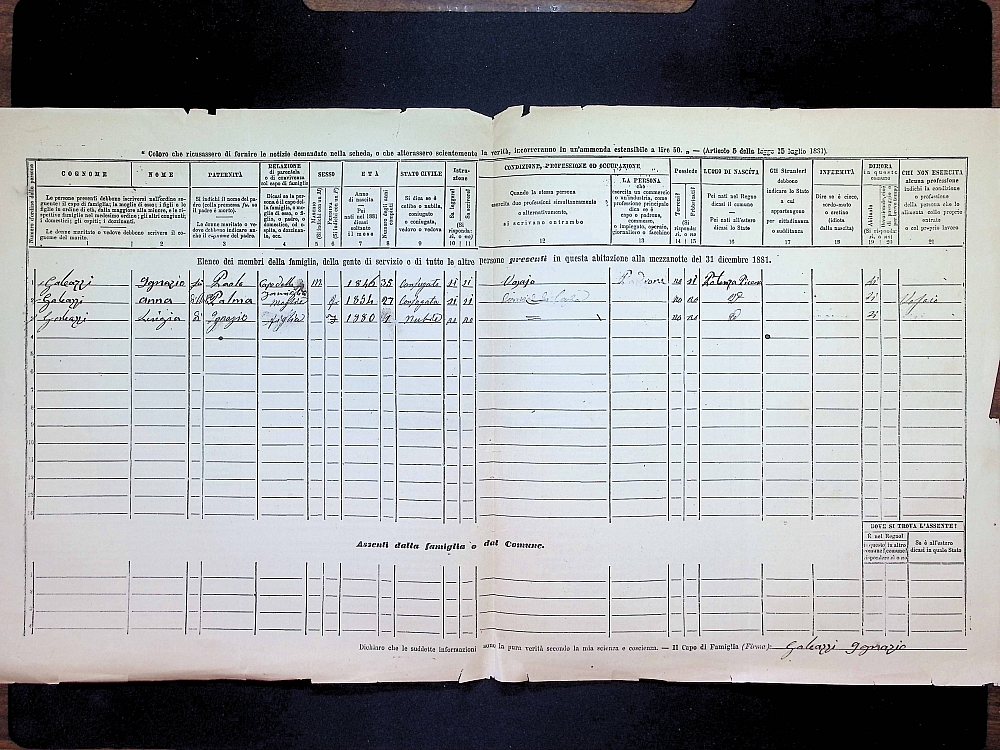 " Coloro che ricusassero di fornire le notizie domandate nella scheda, o che alterassero scientemente la verità, incorreranno in un'ammenda estensibile a lire 50. „ — (Articolo 5 della legge 15 luglio 1881).
COGNOME NOME PATERNITÀ RELAZIONE di parentela o di convivenza col capo di famiglia SESSO ETÀ STATO CIVILE Istruzione CONDIZIONE, PROFESSIONE OD OCCUPAZIONE Possiede LUOGO DI NASCITA Gli Stranieri INFERMITÀ DIMORA in questo comune CHI NON ESERCITA
Numero d'ordine delle persone
Le persone presenti debbono iscriversi nell'ordine seguente: il capo di famiglia; la moglie di esso; i figli e le figlie in ordine di età, dalla maggiore alla minore, e le rispettive famiglie nel medesimo ordine; gli altri congiunti; i domestici; gli ospiti; i dozzinanti.
Le donne maritate o vedove debbono scrivere il cognome del marito.
Si indichi il nome del padre (colla premessa fu, se il padre è morto).
Le donne maritate o vedove debbono indicare anche il cognome del padre.
Dicasi se la persona è il capo della famiglia, o moglie di esso, o figlio, o padre, o domestico, od ospite, o dozzinante, ecc.
Maschio (Si indichi con un M)
Femmina (Si indichi con un F)
Anno di nascita — Pei nati nel 1881 soltanto il mese
Numero degli anni compiuti
Si dica se è celibe o nubile, coniugato o coniugata, vedovo o vedova
Sa leggere? Sa scrivere?
(Si risponda: sì, o no)
Quando la stessa persona esercita due professioni simultaneamente o alternativamente, si scrivano entrambe
LA PERSONA che esercita un commercio o un'industria, come professione principale dica se è capo o padrone, commesso, o impiegato, operaio, giornaliero o facchino
Terreni? Fabbricati?
(Si risponda: sì, o no)
Pei nati nel Regno dicasi il comune — Pei nati all'estero dicasi lo Stato
debbono indicare lo Stato a cui appartengono per cittadinanza o sudditanza
Dire se è cieco, sordo-muto o cretino (idiota dalla nascita)
Abituale
(Si risponda: sì, o no)
alcuna professione indichi la condizione o professione della persona che lo alimenta collo proprio entrate o col proprio lavoro
1 2 3 4 5 6 7 8 9 10 11 12 13 14 15 16 17 18 19 20 21
Elenco dei membri della famiglia, della gente di servizio o di tutte le altre persone presenti in questa abitazione alla mezzanotte del 31 dicembre 1881.
1 Galeazzi Ignazio di Paolo Capo della famiglia m 1846 35 Conjugato si si Padrone no si Potenza Picena si
2 Galeazzi Anna Palma moglie 1854 27 Conjugata si si no no id si
3 Galeazzi Luigia di Ignazio figlia 1880 1 Nubile no no = no no si
4
5
6
7
8
9
10
11
12
13
14
Assenti dalla famiglia o dal Comune.
DOVE SI TROVA L'ASSENTE?
È nel Regno?
in questo comune? in altro comune?
Se è all'estero dicasi in quale Stato
1
2
3
4
Dichiaro che le suddette informazioni sono la pura verità secondo la mia scienza e coscienza. — Il Capo di Famiglia (Firma): Galeazzi Ignazio